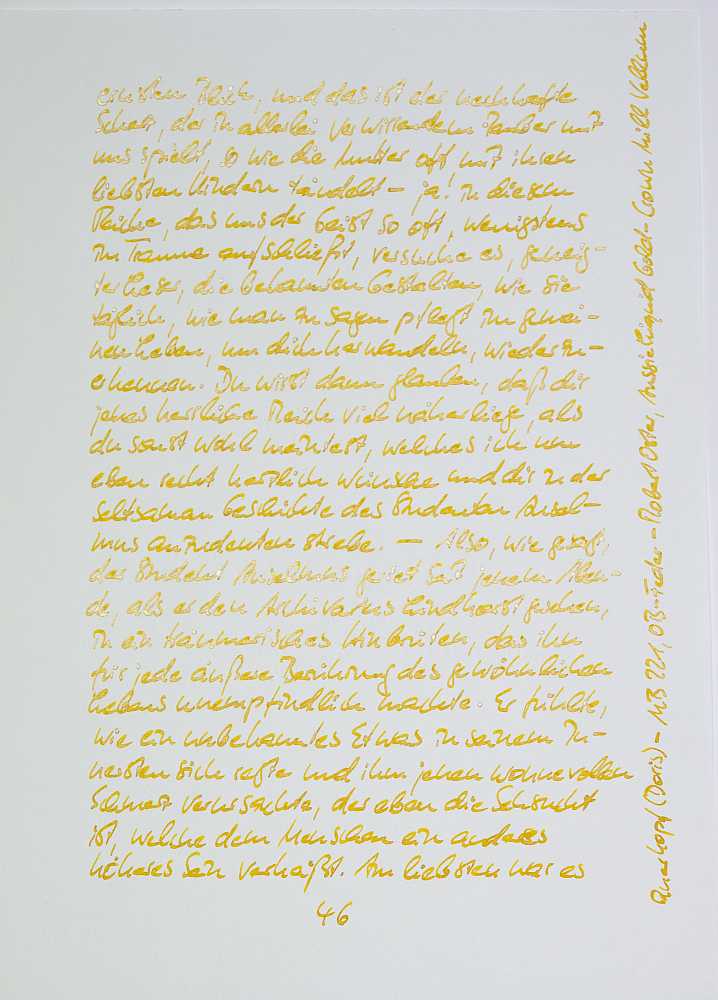 ernsten Reich, und das ist der neckhafte
Scherz, der in allerlei verwirrendem Zauber mit
uns spielt, so wie die Mutter oft mit ihren
liebsten Kindern tändelt – ja! in diesem
Reiche, das uns der Geist so oft, wenigstens
im Traume aufschließt, versuche es, geneig-
ter Leser, die bekannten Gestalten, wie sie
täglich, wie man zu sagen pflegt im gemei-
nen Leben, um dich herwandeln, wiederzu-
erkennen. Du wirst dann glauben, daß dir
jenes herrliche Reich viel näher liege, als
du sonst wohl meintest, welches ich nun
eben recht herzlich wünsche und dir in der
seltsamen Geschichte des Studenten Ansel-
mus anzudeuten strebe. — Also, wie gesagt,
der Student Anselmus geriet seit jenem Aben-
de, als er den Archivarius Lindhorst gesehen,
in ein träumerisches Hinbrüten, das ihn
für jede äußere Berührung des gewöhnlichen
Lebens unempfindlich machte. Er fühlte,
wie ein unbekanntes Etwas in seinem In-
nersten sich regte und ihm jenen wonnevollen
Schmerz verursachte, der eben die Sehnsucht
ist, welche dem Menschen ein anderes
höheres Sein verheißt. Am liebsten war es
46
Querkopf (Doris) – MB 221, OB-Feder – Robert Oster, Aussie Liquid Gold – Crown Mill Vellum